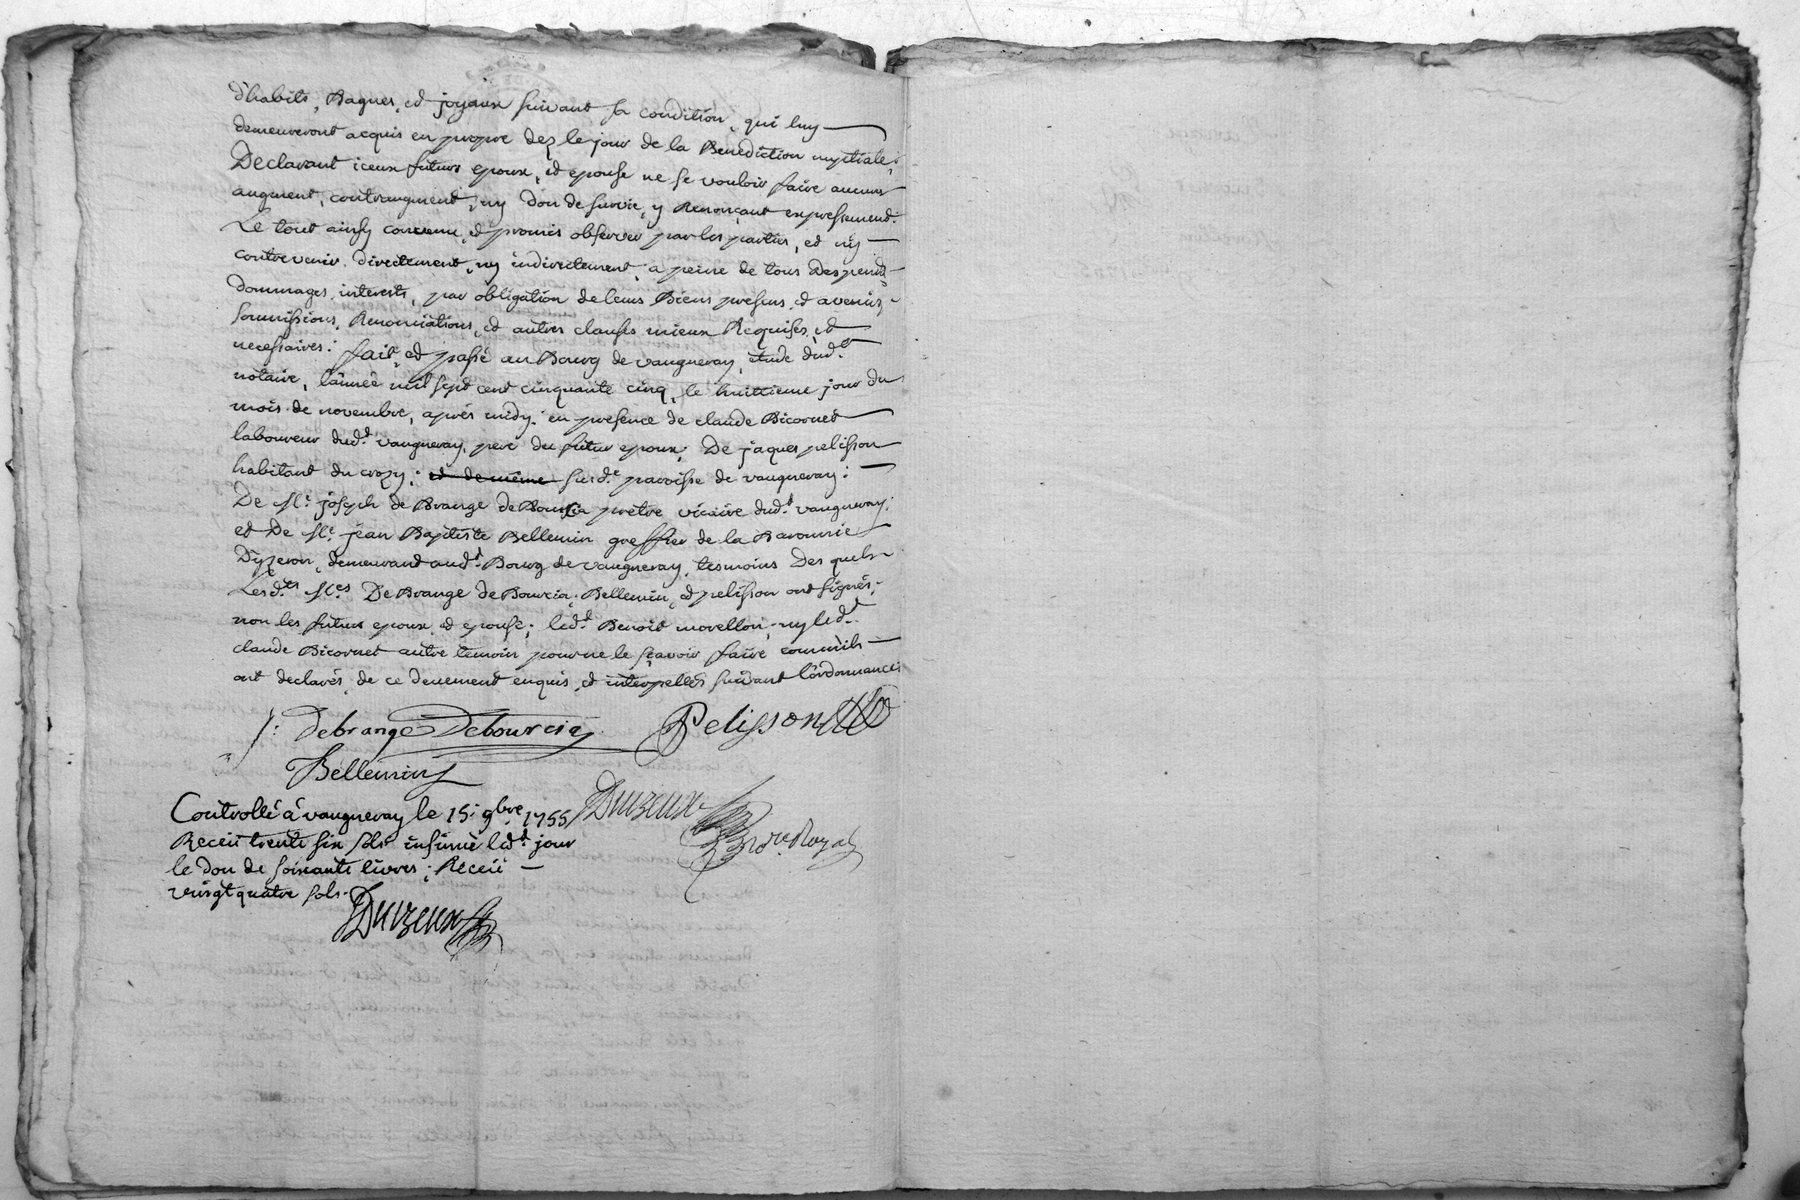 d'habits, Bagues, et joyaux suivant sa condition, qui luy
demeureront acquis en propre dez le jour de la Benediction nuptiale;
Declarant iceux futurs epoux, et epouse ne se vouloir faire aucuns
augment, contraugment, ny don de survie, y Renonçant expressement.
Le tout ainsy convenu, et promis observer par les parties, et n'y
contrevenir directement, ny indirectement, a peine de tous Despens
Dommages, interests, par obligation de leurs Biens presens, et avenir,
soumissions, Renonciations, et autres clauses mieux Requises, et
necessaires: fait, et passé au Bourg de vaugneray, étude dud.t
notaire, l'année mil sept cent cinquante cinq, le huittieme jour du
mois de novembre, après midy: en presence de claude Bicornet
laboureur dud.t vaugneray, pere du futur epoux; De jaques pelisson
habitant du crozy; et de même susd.e parroisse de vaugneray:
De M.e joseph de Brange de Bourcia prêtre vicaire dud.t vaugneray;
et De M.e jean Baptiste Bellemin greffier de la Baronnie
D'yzeron, demeurant aud.t Bourg de vaugneray, tesmoins Des quels
Lesd.es M.es De Brange de Bourcia, Bellemin, et pelisson ont signés,
non les futurs epoux, et epouse; led.t Benoit morellon, ny led.t
claude Bicornet autre temoin pour ne le sçavoir faire comm'ils
ont declarés, de ce deuement enquis, et interpellés suivant l'ordonnance;
j: Debrange Debourcia Pelisson
Bellemin
Controllé à vaugneray le 15: 9bre 1755 Duvzeux
Receu trente six sols insinué led.t jour no.re Royal
le don de soixante livres; Receü
vingt quatre sols.
Duvzeux